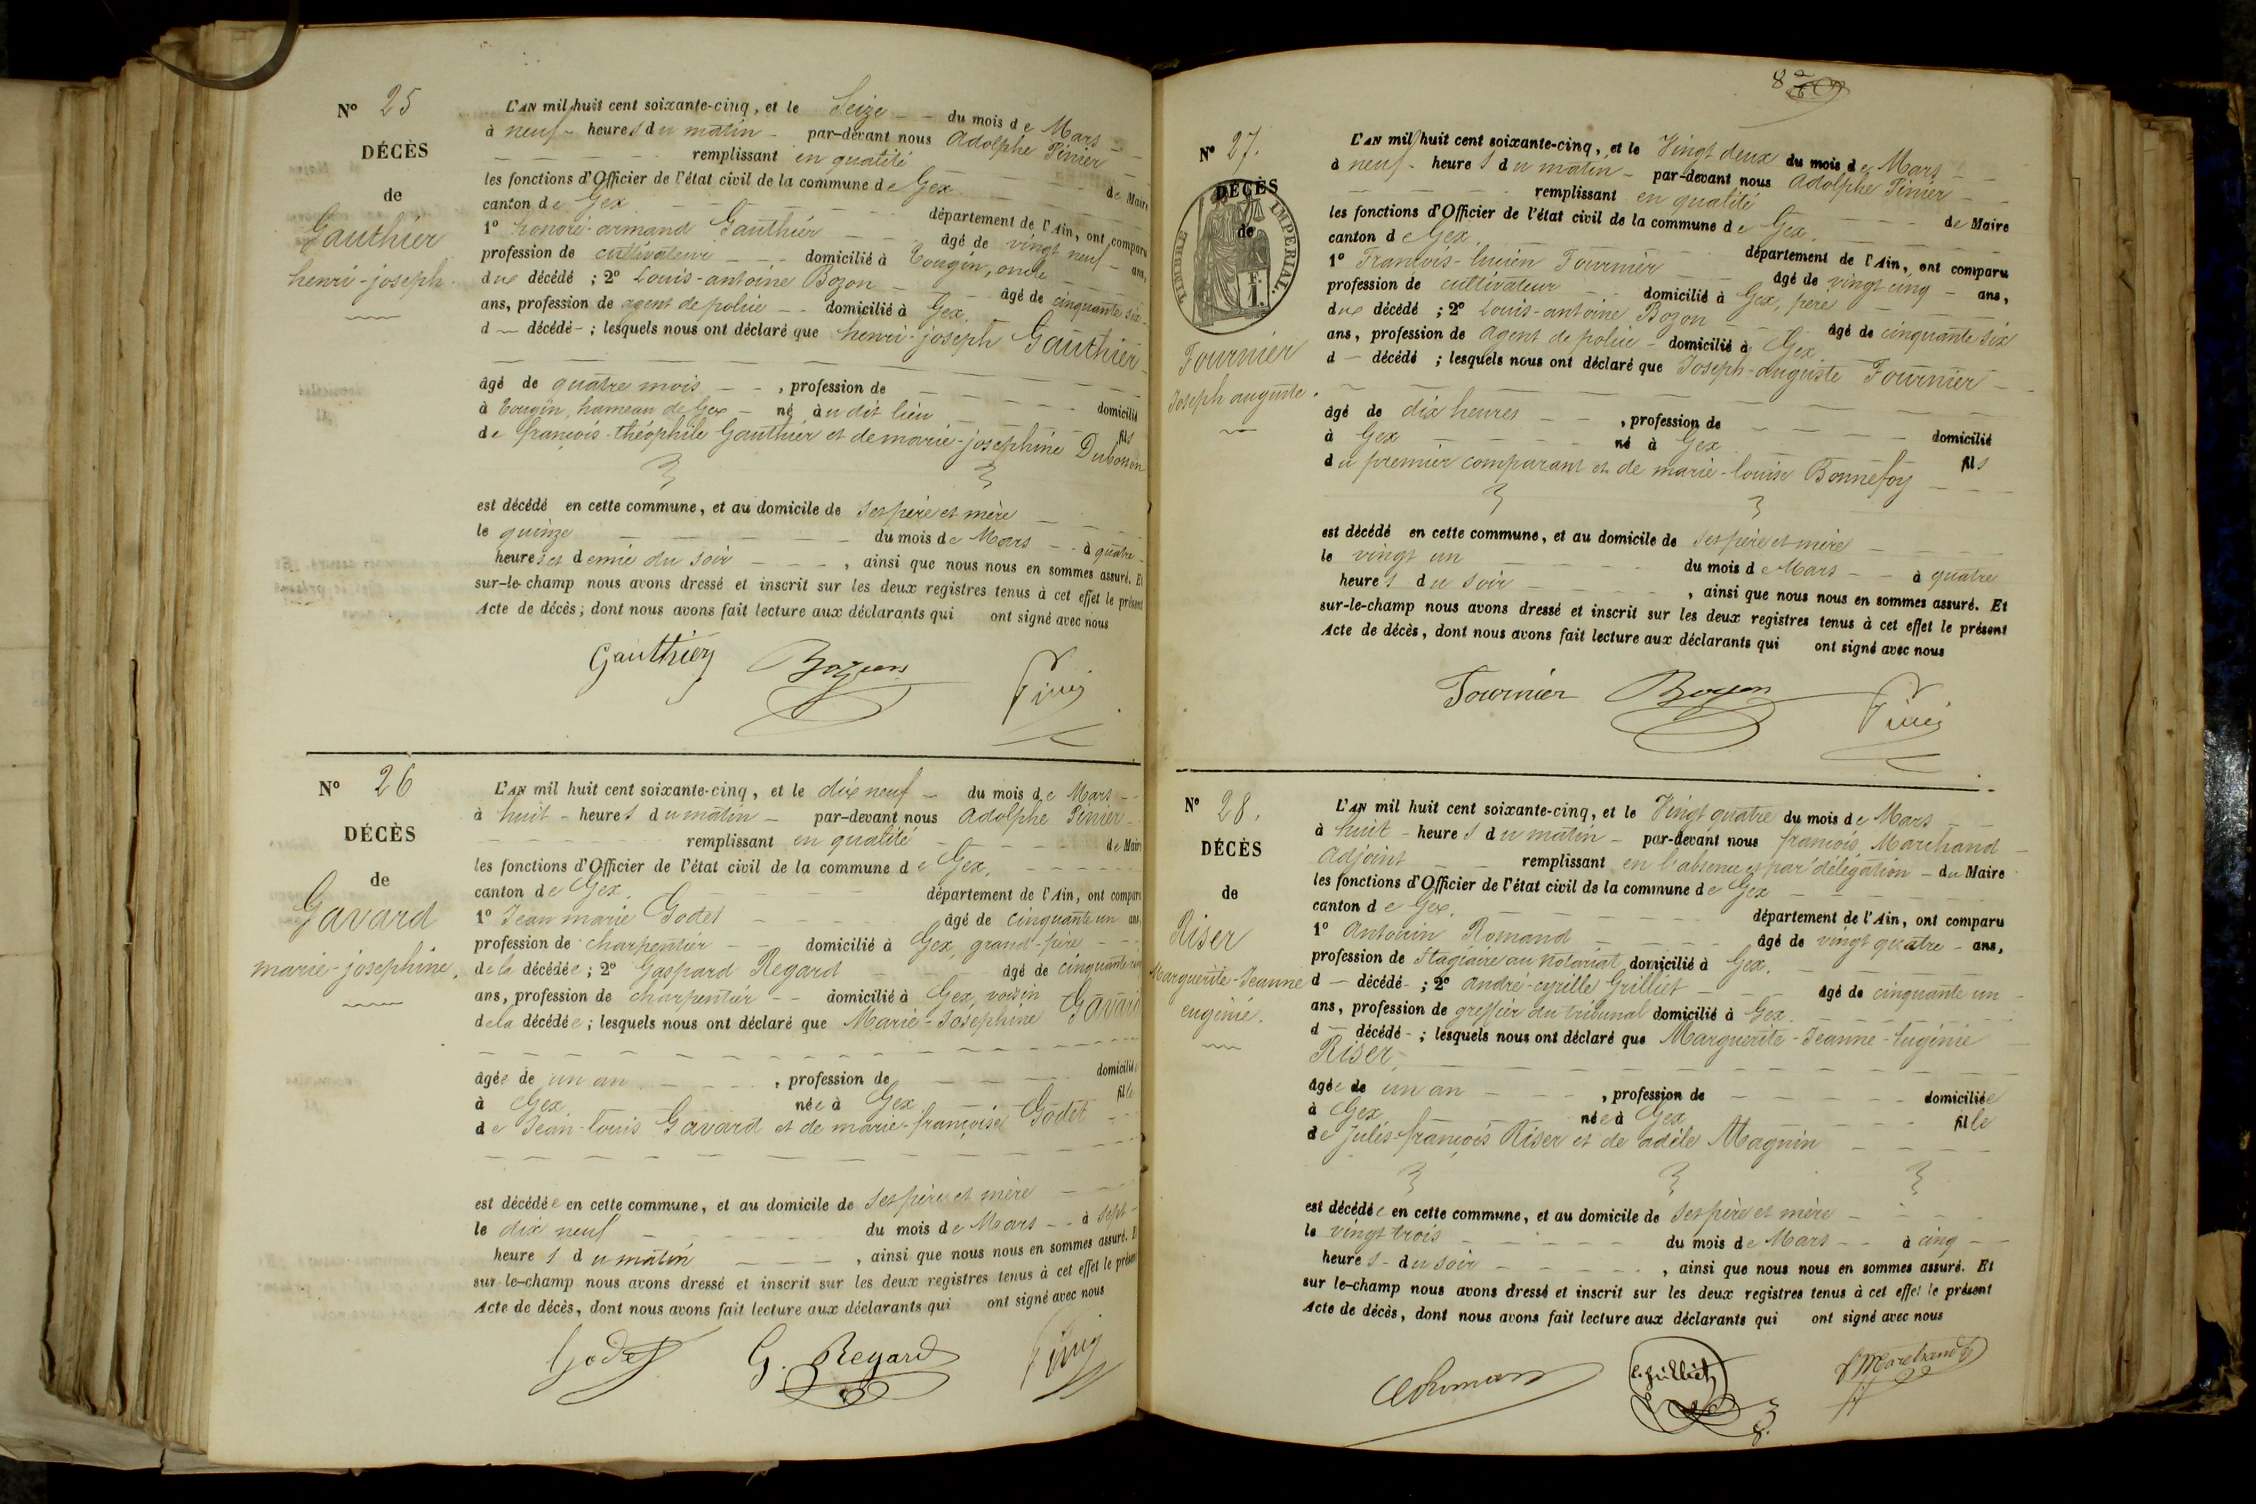 Nº 25
DÉCÈS
de
Gauthier
henri-joseph.
L'AN mil huit cent soixante-cinq, et le Seize du mois de Mars
à neuf heures du matin par-devant nous Adolphe Pinier
remplissant en qualité de Maire
les fonctions d'Officier de l'état civil de la commune de Gex
canton de Gex département de l'Ain, ont comparu
1º honoré-armand Gauthier âgé de vingt neuf ans,
profession de cultivateur domicilié à Tougin, oncle
due décédé ; 2º Louis-antoine Bozon âgé de cinquante six
ans, profession de agent de police domicilié à Gex.
d décédé ; lesquels nous ont déclaré que henri-joseph Gauthier
âgé de quatre mois , profession de domicilié
à Tougin, hameau de Gex né au dit lieu fils
de françois-théophile Gauthier et de marie-josephine
est décédé en cette commune, et au domicile de ses père et mère
le quinze du mois de Mars à quatre
heures et demie du soir , ainsi que nous nous en sommes assuré. Et
sur-le-champ nous avons dressé et inscrit sur les deux registres tenus à cet effet le présent
Acte de décès ; dont nous avons fait lecture aux déclarants qui ont signé avec nous
Gauthier Bozon
Nº 26
DÉCÈS
de
Gavard
marie-josephine.
L'AN mil huit cent soixante-cinq, et le dix neuf du mois de Mars
à huit heures du matin par-devant nous Adolphe Pinier
remplissant en qualité de Maire
les fonctions d'Officier de l'état civil de la commune de Gex,
canton de Gex. département de l'Ain, ont comparu
1º Jean marie Godet âgé de cinquante un ans,
profession de charpentier domicilié à Gex, grand-père
de la décédée ; 2º Gaspard Regard âgé de cinquante
ans, profession de charpentier domicilié à Gex, voisin
de la décédée ; lesquels nous ont déclaré que Marie-Joséphine Gavard
âgée de un an , profession de domiciliée
à Gex née à Gex fille
de Jean-Louis Gavard et de marie-françoise Godet
est décédée en cette commune, et au domicile de ses père et mère
le dix neuf du mois de Mars à sept
heures du matin , ainsi que nous nous en sommes assuré. Et
sur-le-champ nous avons dressé et inscrit sur les deux registres tenus à cet effet le présent
Acte de décès, dont nous avons fait lecture aux déclarants qui ont signé avec nous
Godet G. Regard
Nº 27.
DÉCÈS
de
TIMBRE IMPERIAL
Fournier
Joseph auguste.
L'AN mil huit cent soixante-cinq, et le Vingt deux du mois de Mars
à neuf heures du matin par-devant nous Adolphe Pinier
remplissant en qualité de Maire
les fonctions d'Officier de l'état civil de la commune de Gex.
canton de Gex. département de l'Ain, ont comparu
1º François-lucien Fournier âgé de vingt cinq ans,
profession de cultivateur domicilié à Gex, père
due décédé ; 2º Louis-antoine Bozon âgé de cinquante six
ans, profession de agent de police domicilié à Gex
d décédé ; lesquels nous ont déclaré que Joseph-auguste Fournier
âgé de dix heures , profession de domicilié
à Gex né à Gex fils
du premier comparant et de marie-louise Bonnefoy
est décédé en cette commune, et au domicile de ses père et mère
le vingt un du mois de Mars à quatre
heures du soir , ainsi que nous nous en sommes assuré. Et
sur-le-champ nous avons dressé et inscrit sur les deux registres tenus à cet effet le présent
Acte de décès, dont nous avons fait lecture aux déclarants qui ont signé avec nous
Fournier Bozon
Nº 28.
DÉCÈS
de
Riser
Marguerite-Jeanne
eugénie.
L'AN mil huit cent soixante-cinq, et le Vingt quatre du mois de Mars
à huit heures du matin par-devant nous françois Marchand
Adjoint remplissant en l'absence et par délégation du Maire
les fonctions d'Officier de l'état civil de la commune de Gex
canton de Gex. département de l'Ain, ont comparu
1º Antonin Romand âgé de vingt quatre ans,
profession de Stagiaire au Notariat domicilié à Gex.
d décédé ; 2º André-cyrille Grilliet âgé de cinquante un
ans, profession de greffier du tribunal domicilié à Gex.
d décédé ; lesquels nous ont déclaré que Marguerite-Jeanne-Eugénie
Riser
âgée de un an , profession de domiciliée
à Gex née à Gex fille
de Jules-françois Riser et de adèle Magnin
est décédée en cette commune, et au domicile de ses père et mère
le vingt trois du mois de Mars à cinq
heures du soir , ainsi que nous nous en sommes assuré. Et
sur le-champ nous avons dressé et inscrit sur les deux registres tenus à cet effet le présent
Acte de décès, dont nous avons fait lecture aux déclarants qui ont signé avec nous